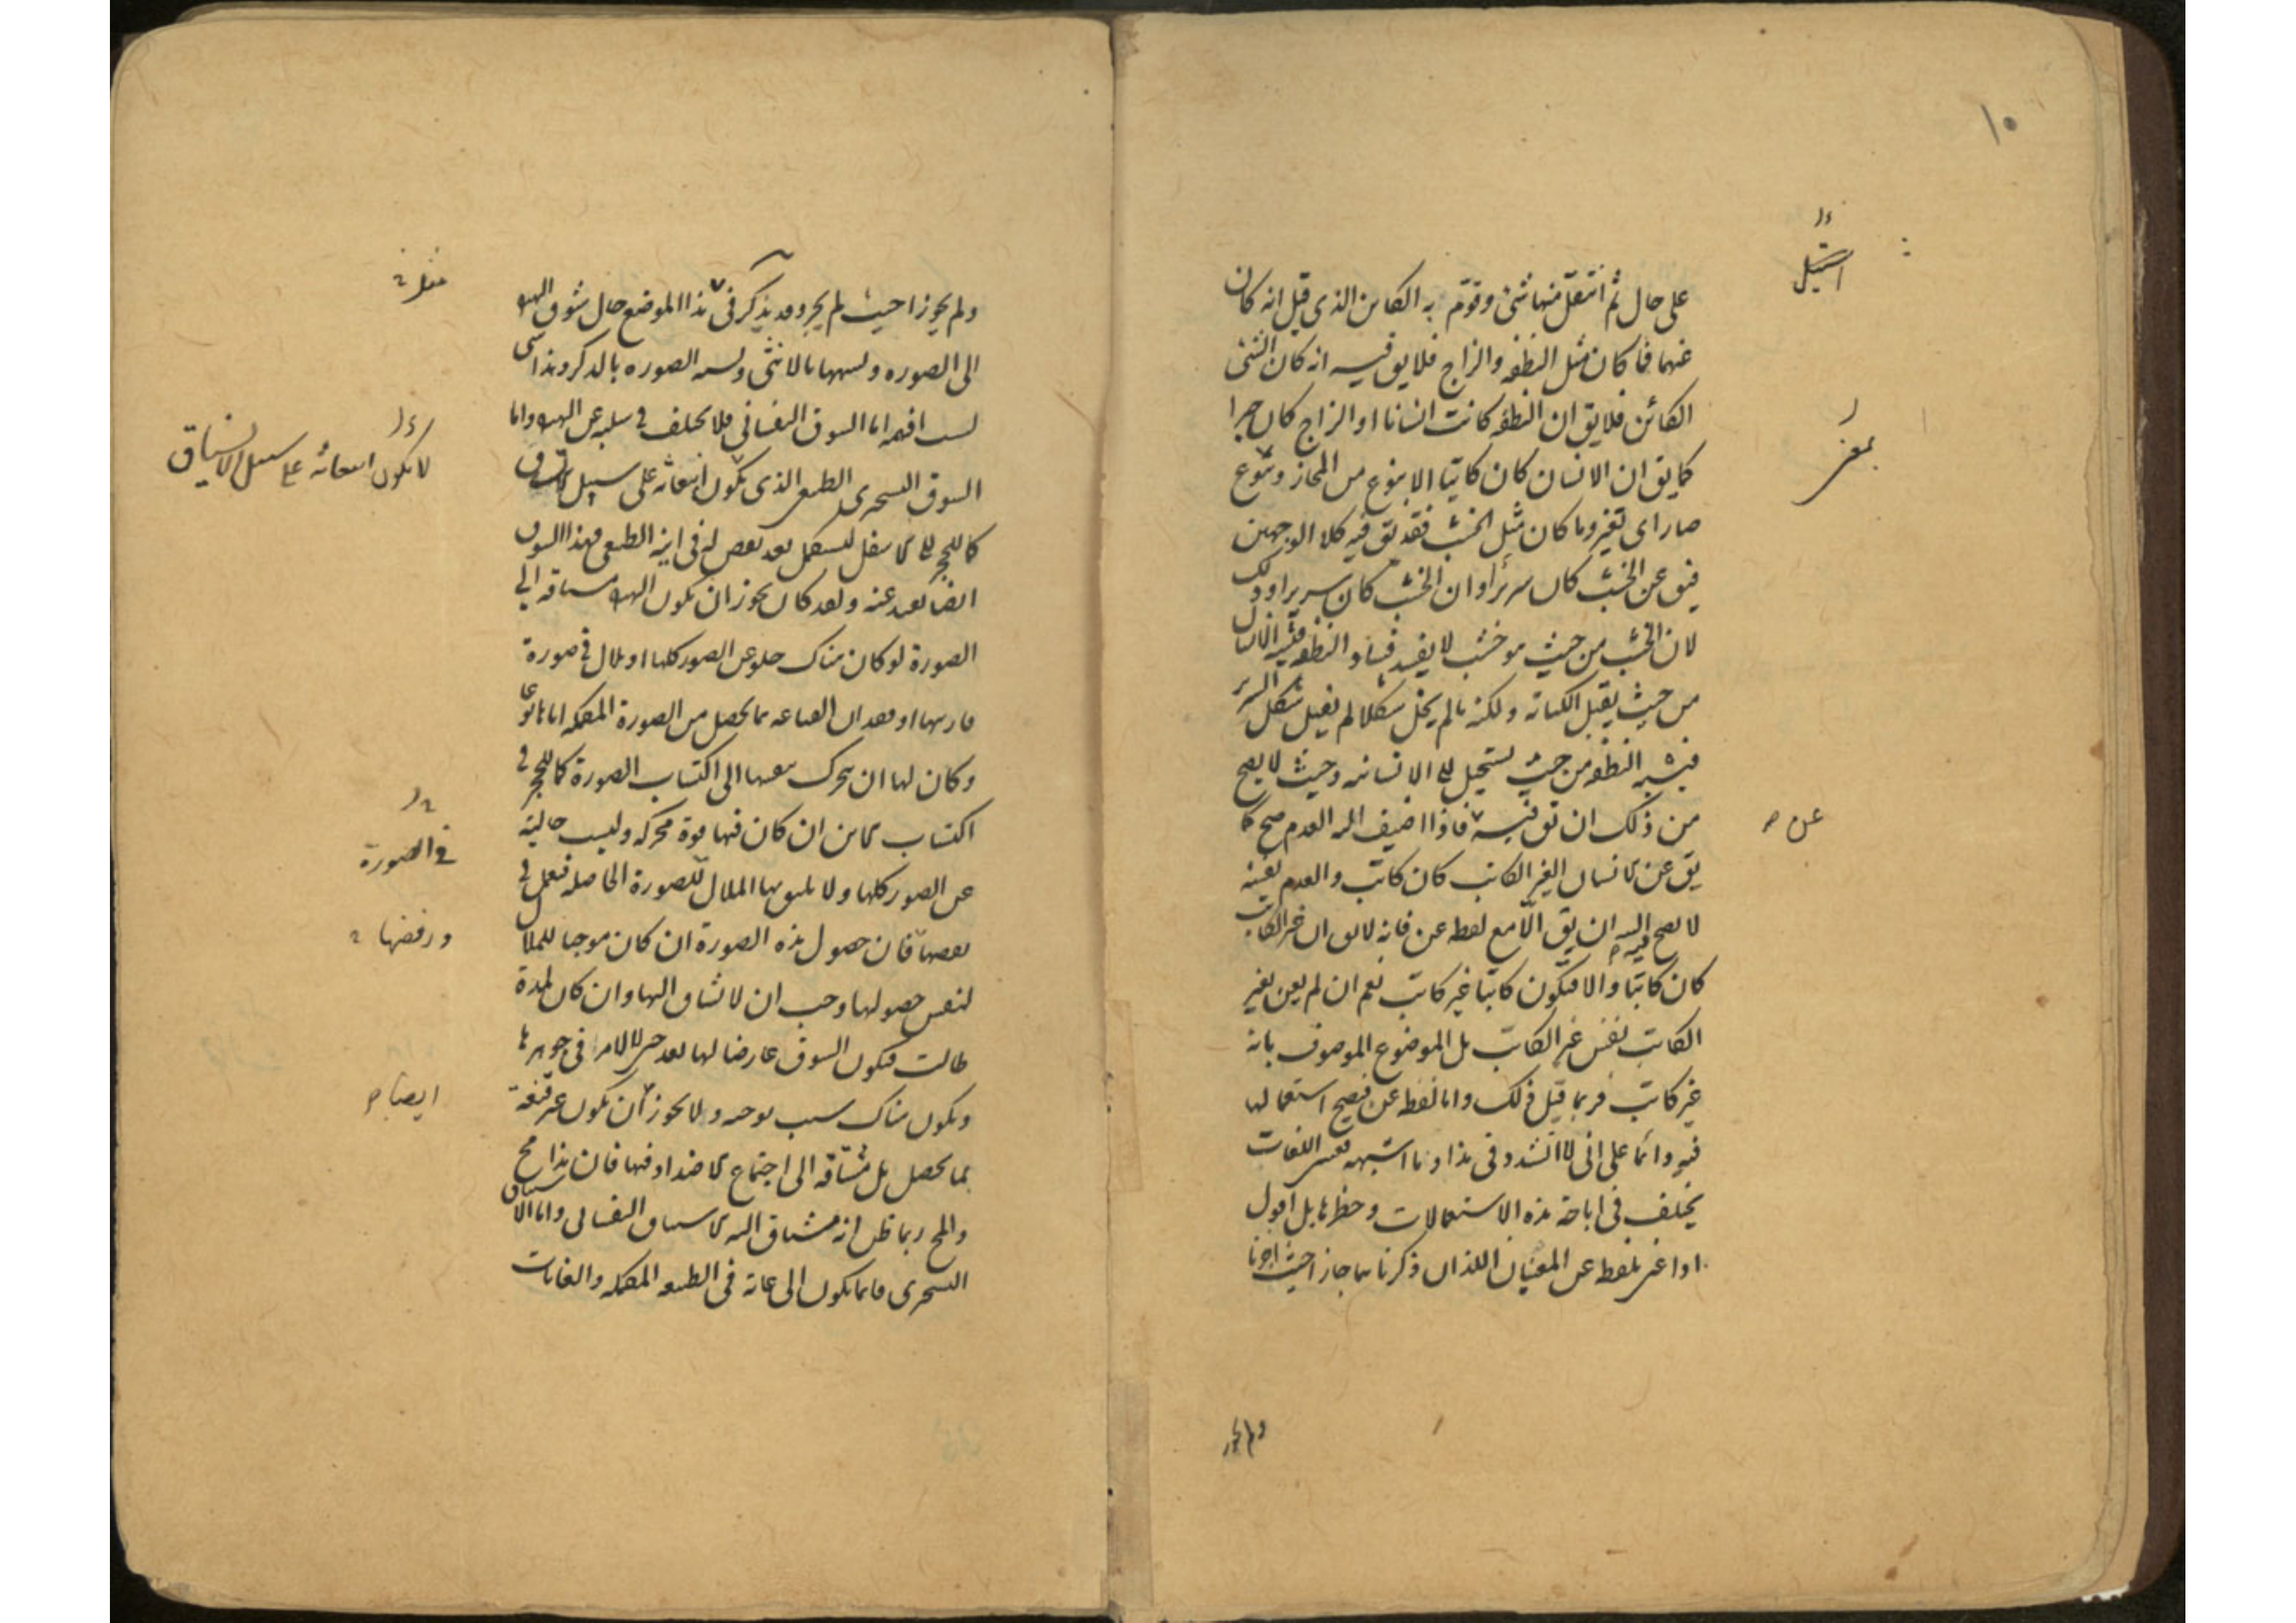 ١٠
استحيل
على حال ثم انتقل منها شئ وقوم به الكائن الذى قيل انه كان
عنهما فما كان مثل النطفه والزاج فلا يق فيه انه كان الشئ
الكائن فلا يق ان النطفه كانت انسانا او الزاج كان حبرا
كما يق ان الانسان كان كاتبا الا بنوع من المجاز وبنوع
صار اى تغير وما كان مثل الخشب فقد يق فيه كلا الوجهين
فيق عن الخشب كان سريرا وان الخشب كان سريرا وذلك
لان الخشب من حيث هو خشب لا يفسد فساد النطفه فيشبه الانسان
من حيث يقبل الكتابة ولكنه ما لم يخل شكلا لم يقبل شكل السرير
فيشبه النطفه من حيث يستحيل الى الانسانيه وحيث لا يصح
من ذلك ان يق فيه فاذا اضيف اليه العدم صح كما
عن
يق عن الانسان الغير الكاتب كان كاتب والعدم بعينه
لا يصح فيه البته ان يق الا مع لفظ عن فانه لا يق ان غير الكاتب
كان كاتبا والا فيكون كاتبا غير كاتب نعم ان لم يعن بغير
الكاتب نفس غير الكاتب بل الموضوع الموصوف بانه
غير كاتب فربما قيل ذلك واما لفظ عن فيصح استعمالها
فيه دائما على انى لا اتشدد فى هذا وما اشبهه فعسى اللغات
يختلف فى اباحة هذه الاستعمالات وحظرها بل اقول
اذا عنى بلفظ عن المعنيان اللذان ذكرناهما جاز حيث اجزنا
ولم يجوز
ولم يجوزا حيث لم يجز وقد يذكر فى هذا الموضع حال شوق الهيولى
الى الصوره وتشبهها بالانثى وتشبه الصوره بالذكر وهذا شئ
لست افهمه اما الشوق النفسانى فلا يختلف فى سلبه عن الهيولى واما
الشوق التسخيرى الطبيعى الذى يكون انبعاثه على سبيل الانسياق
لا يكون انبعاثه على سبيل الاشتياق
كما للحجر الى الاسفل ليستكمل بعد نقص له فى اينه الطبيعى فهذا الشوق
ايضا بعيد عنه ولقد كان يجوز ان يكون الهيولى مشتاقه الى
الصورة لو كان هناك خلو عن الصور كلها او ملال فى صورة
قارنتها او فقدان القناعه بما يحصل من الصورة المكمله اياها نوعا
وكان لها ان يتحرك بنفسها الى اكتساب الصورة كما للحجر فى
اكتساب الاين ان كان فيها قوة محركه وليست خالية
فى الصورة
عن الصور كلها ولا يليق بها الملال للصورة الحاصله فتعمل فى
نقضها فان حصول هذه الصورة ان كان موجبا للملال
ورفضها
لنفس حصولها وجب ان لا يشتاق اليها وان كان لمدة
طالت فيكون الشوق عارضا لها بعد حين لا لامر فى جوهرها
ايضا
ويكون هناك سبب يوجبه ولا يجوز ان يكون غير قنعة
بما يحصل بل مشتاقه الى اجتماع الاضداد فيها فان هذا مح
والمح ربما ظن انه مشتاق اليه الاشتياق النفسانى واما الاشتياق
التسخيرى فانما يكون الى غاية فى الطبيعه المكمله والغايات